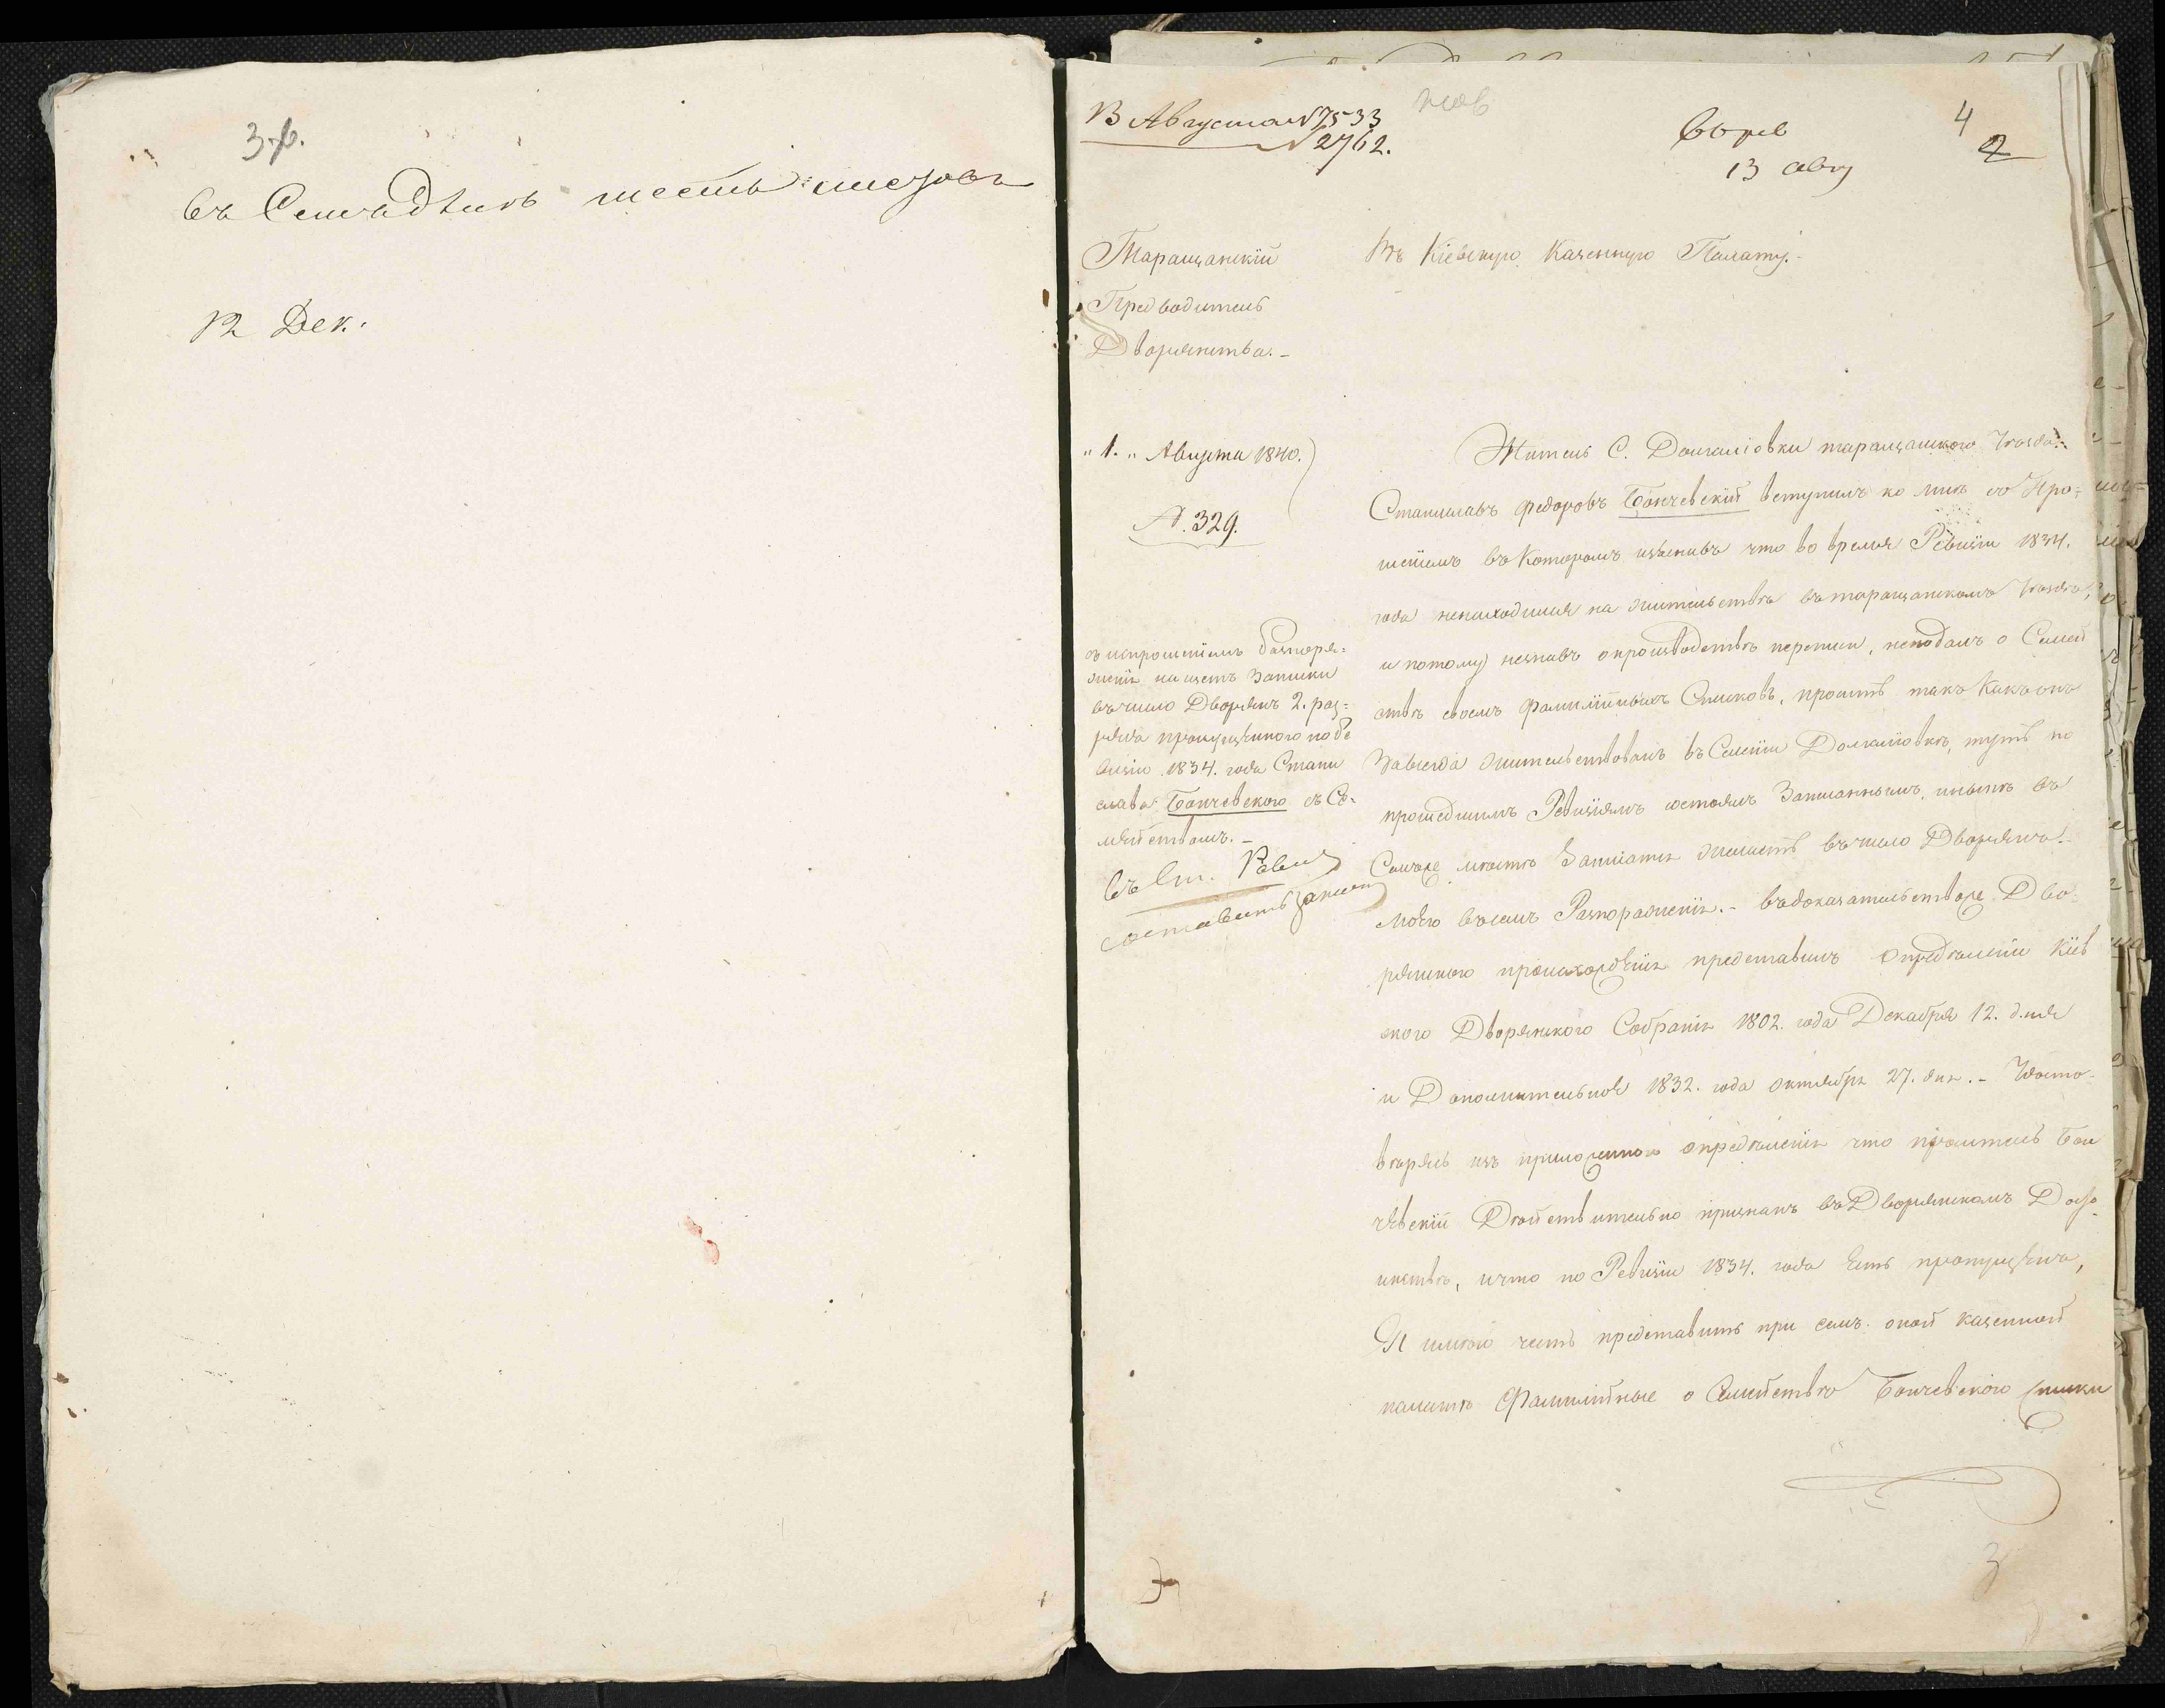 3.
12 Дек.
13 Августа №7533
2762.
13 авг
4
2
Таращанскій
Предводитель
Дворянства.-
Въ Кіевскую Казенную Палату.-
"1." Августа 1840.
№. 329.
съ испрошеніемъ Распоря=
женія на щетъ Записки
въчисло Дворянъ 2. раз=
ряда пропущеннаго по Ре
визіи 1834. года Стани
слава Бончевского съ Се=
мѣйствомъ.-
Житель С. Долгаліовки таращанского Уѣзда.
Станиславъ Федоровъ Бончевскій вступилъ ко мнѣ съ Про=
шеніемъ въ Которомъ изъяснивъ что во время Ревизіи 1834.
года ненаходился на жительствѣ въ таращанскомъ Уѣздѣ,
и потому незнавъ опроизводствѣ переписи, неподалъ о Семей
ствѣ своемъ фамилійныхъ Списковъ, проситъ такъ Какъ онъ
Завсегда жительствовалъ въ Селеніи Долгаліовкѣ, тутъ по
прошедшимъ Ревизіямъ состоялъ Записаннымъ, нынѣ въ
Самомъ мѣстѣ Записать въчисло Дворянъ.-
въсемъ Разпоряженія.- въдоказательство Дво-
рянского происхожденія представилъ опредѣленіи Кіев
ского Дворянского Собранія 1802. года Декабря 12. дня
и Дополнительное 1832. года октября 27. дня.- Удосто-
вѣрясь изъ приложенного опредѣленія что проситель Бон
чевскій Дѣйствительно признанъ въ Дворянскомъ Досто
инствѣ, ичто по Ревизіи 1834. года есть пропущенъ,
Я имѣю честь представить при семъ оной казенной
палатѣ Фамилійные о Семействѣ Бончевского списки
3